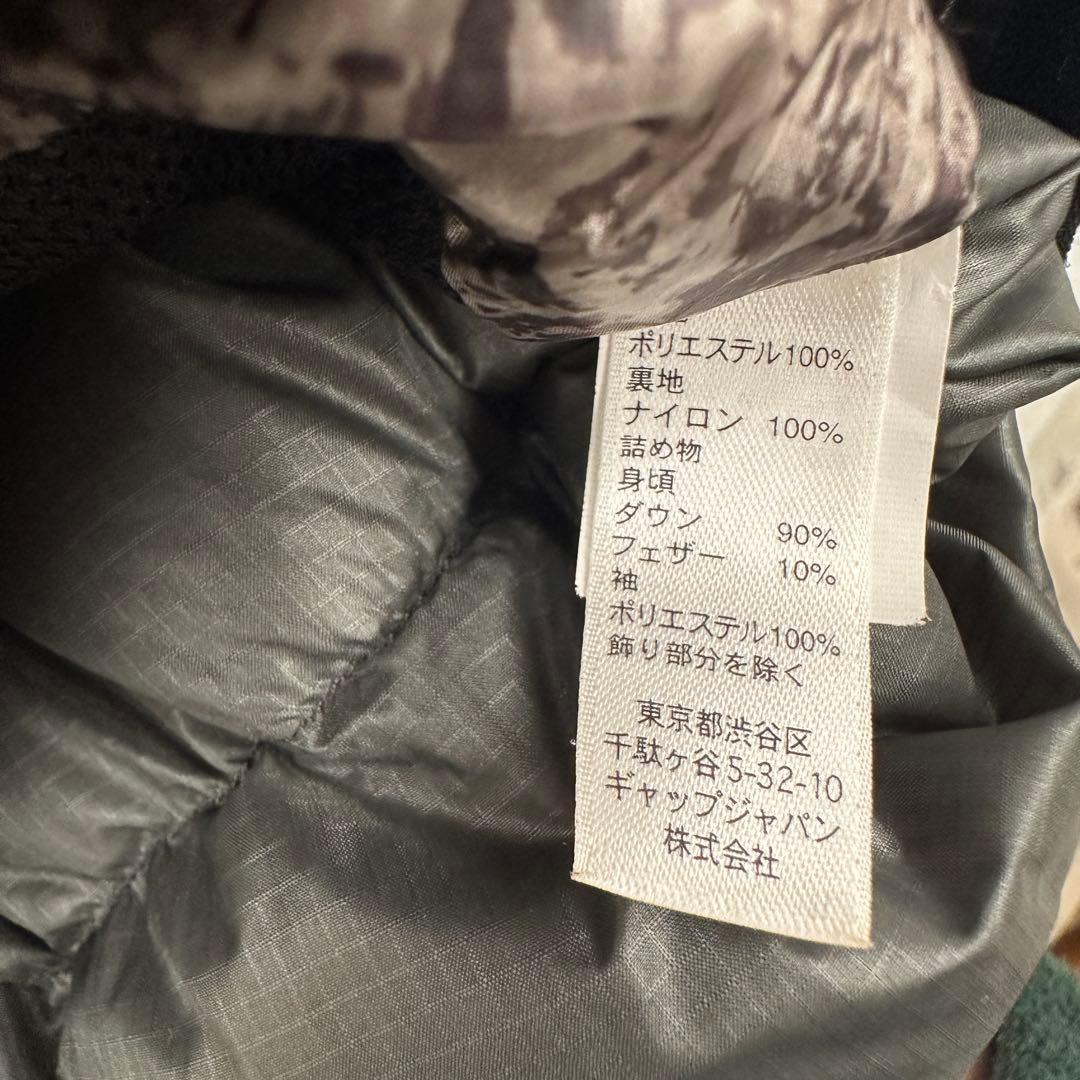 ポリエステル100%
裏地
ナイロン 100%
詰め物
身頃
ダウン 90%
フェザー 10%
袖
ポリエステル100%
飾り部分を除く
東京都渋谷区
千駄ヶ谷5-32-10
ギャップジャパン
株式会社